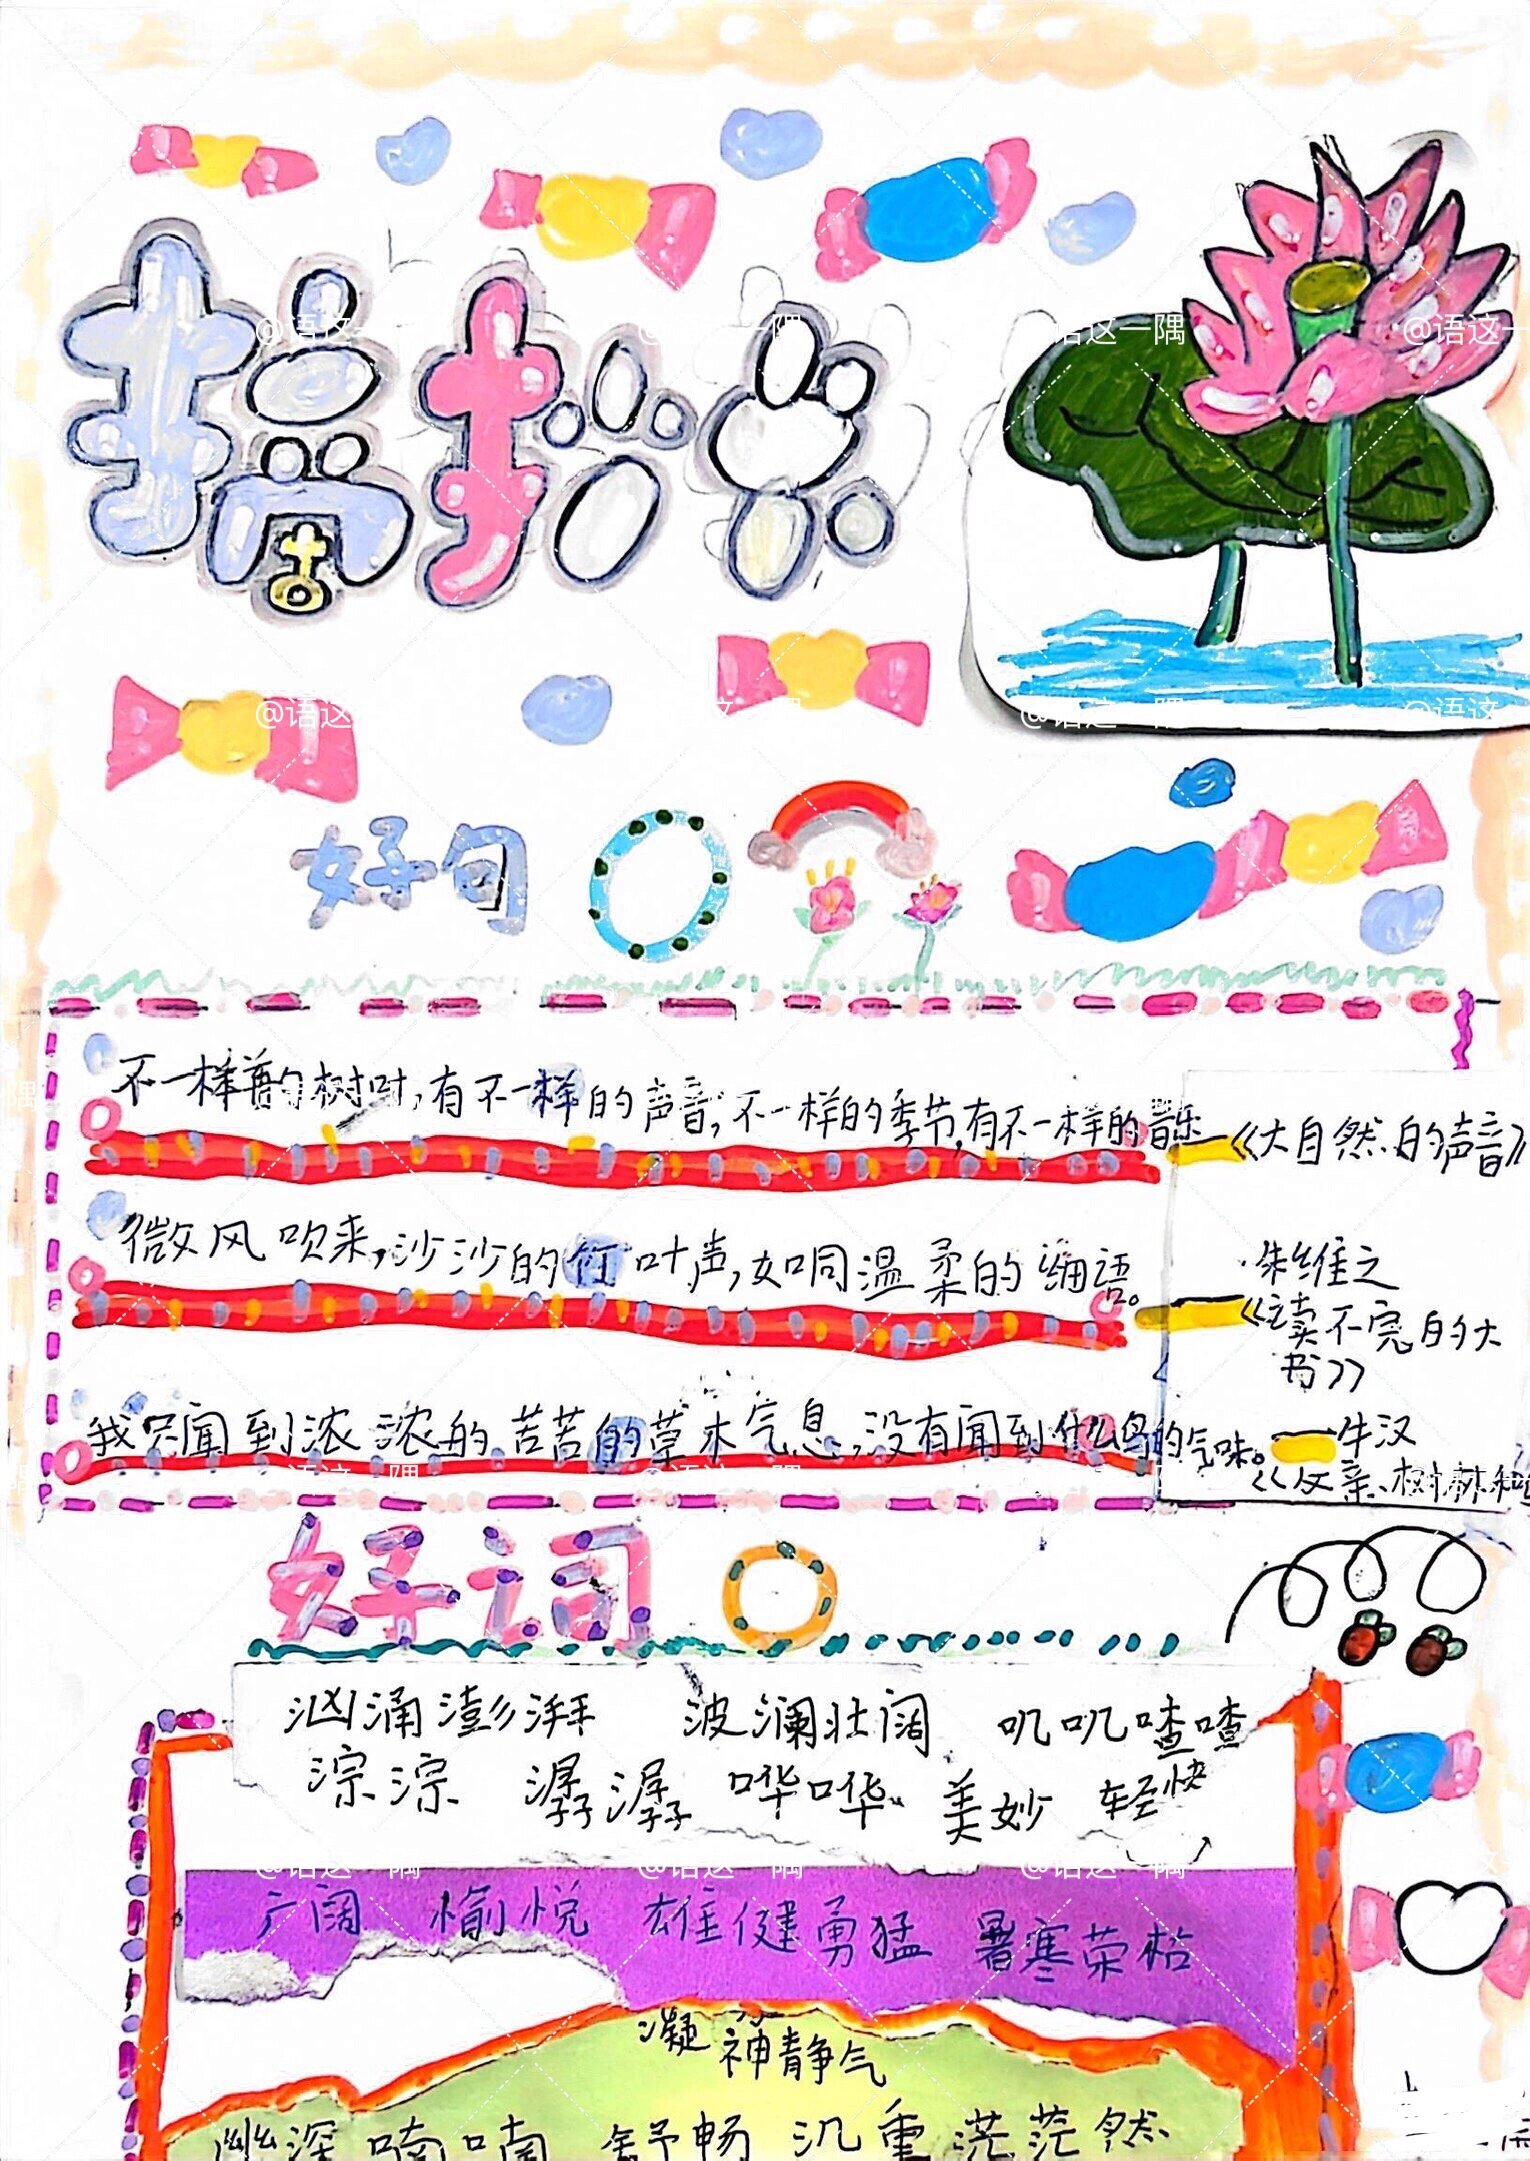 摘抄
好句
不一样的树叶,有不一样的声音,不一样的季节,有不一样的音乐——《大自然的声音》
微风吹来,沙沙的竹叶声,如同温柔的细语。——朱维之
《读不完的大书》
我只闻到浓浓的苦苦的草木气息,没有闻到什么鸟的气味。——牛汉
《父亲、树林和
好词
汹涌澎湃 波澜壮阔 叽叽喳喳
淙淙 潺潺 哗哗 美妙 轻快
广阔 愉悦 雄健勇猛 暑寒荣枯
凝神静气
幽深 喃喃 舒畅 沉重 茫茫然
@语这一隅